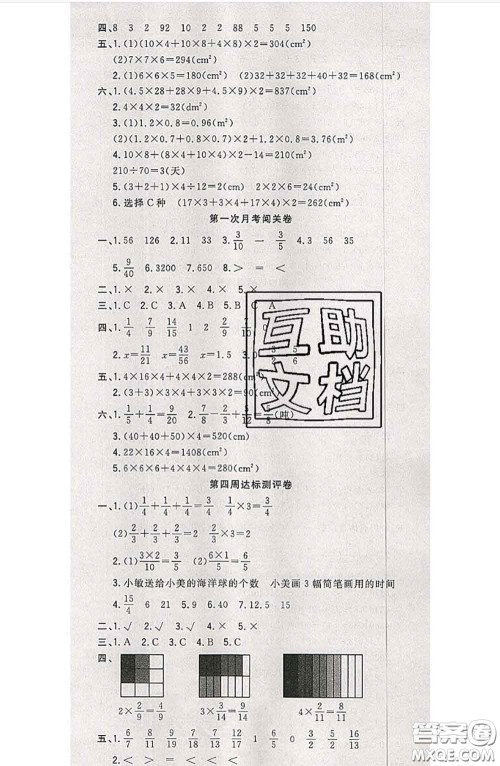 四、8 3 2 92 10 2 98 5 5 5 150
五、1.(1)(10×4+10×8+4×8)×2=304(cm²)
(2)7×7×6=294(cm²)
2.(1)6×6×5=180(cm²) (2)32+32+32+40+32=168(cm²)
六、1.(4.5×28+28×9+4.5×9)×2=837(cm²)
2.4×4×2=32(dm²)
3.(1)1.2×0.8=0.96(m²)
(2)(1.2×0.7+0.8×0.7)×2+1.2×0.8=3.76(m²)
4.10×8+(8×4+10×4)×2-14=210(m²)
210÷70=3(天)
5.(3+2+1)×4÷12=2(cm) 2×2×6=24(cm²)
6.选择C种 (17×3+3×4+17×4)×2=262(cm²)
第一次月考闯关卷
一、1.56 126 2.11 33 3.3/10 一 3/5 4.3 56 35
5.9/40 6.3200 7.650 8.> = <
二、1.× 2.× 3.× 4.× 5.×
三、1.C 2.C 3.A 4.B 5.C 6. A
四、1.1/4 7/9 14/15 1 2 2/9 0
2.x=11/21 x=43/56 3. 5/6
五、1.4×16×4+4×4×2=288(cm²)
六、1.1/5+1/4=9/20 2.7/8-2/3+ =5/8(吨)
3.(40+40+50)×4=520(cm)
4.22×16×4=1408(cm²)
5.6×6×2+6×4×9=288(cm²)
第四周达标测评卷
一、1.(1)1/4+1/4+1/4=3/4 1/4×3=3/4
(2)2/3+2/3=4/3
2.(1)3×2/10=3/5 (2)6×1/5=6/5
3.小敏送给小美的海洋球的个数 小美画3幅简笔画用的时间
4.15/4 6 21 5.9 6.20 7.12.5 15
二、1.√ 2.√ 3.√ 4.× 5.×
三、1.A 2.C 3.B 4.C 5.C
四、
2×2/9=4/9 3×3/14=9/14 4×2/11=8/11
五、1.6/7 2/11 17/18 9/19 12/17 1/2 1 6/5 0 3/2 15/13
2.< < = > = <
互助
文档
答案圈
MXQE.COM